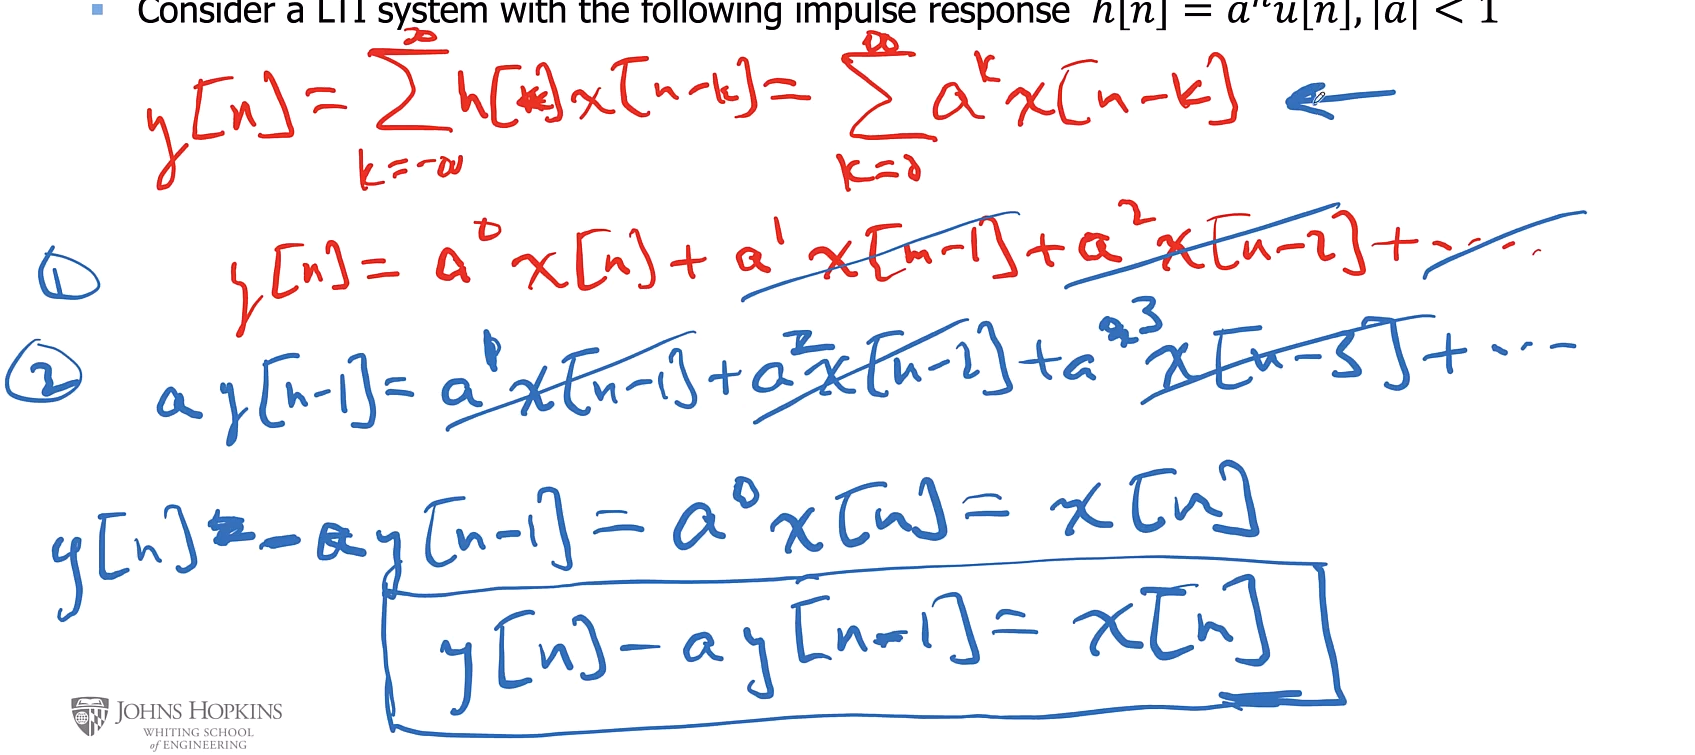 Consider a LTI system with the following impulse response h[n] = aⁿu[n], |a| < 1
y[n] = ∑_{k=-∞}^{∞} h[k] x[n-k] = ∑_{k=0}^{∞} a^k x[n-k] ←
① y[n] = a⁰ x[n] + a¹ x[n-1] + a² x[n-2] + .....
② a y[n-1] = a¹ x[n-1] + a² x[n-2] + a³ x[n-3] + ...
y[n] - a y[n-1] = a⁰ x[n] = x[n]
y[n] - a y[n-1] = x[n]
JOHNS HOPKINS
WHITING SCHOOL
of ENGINEERING